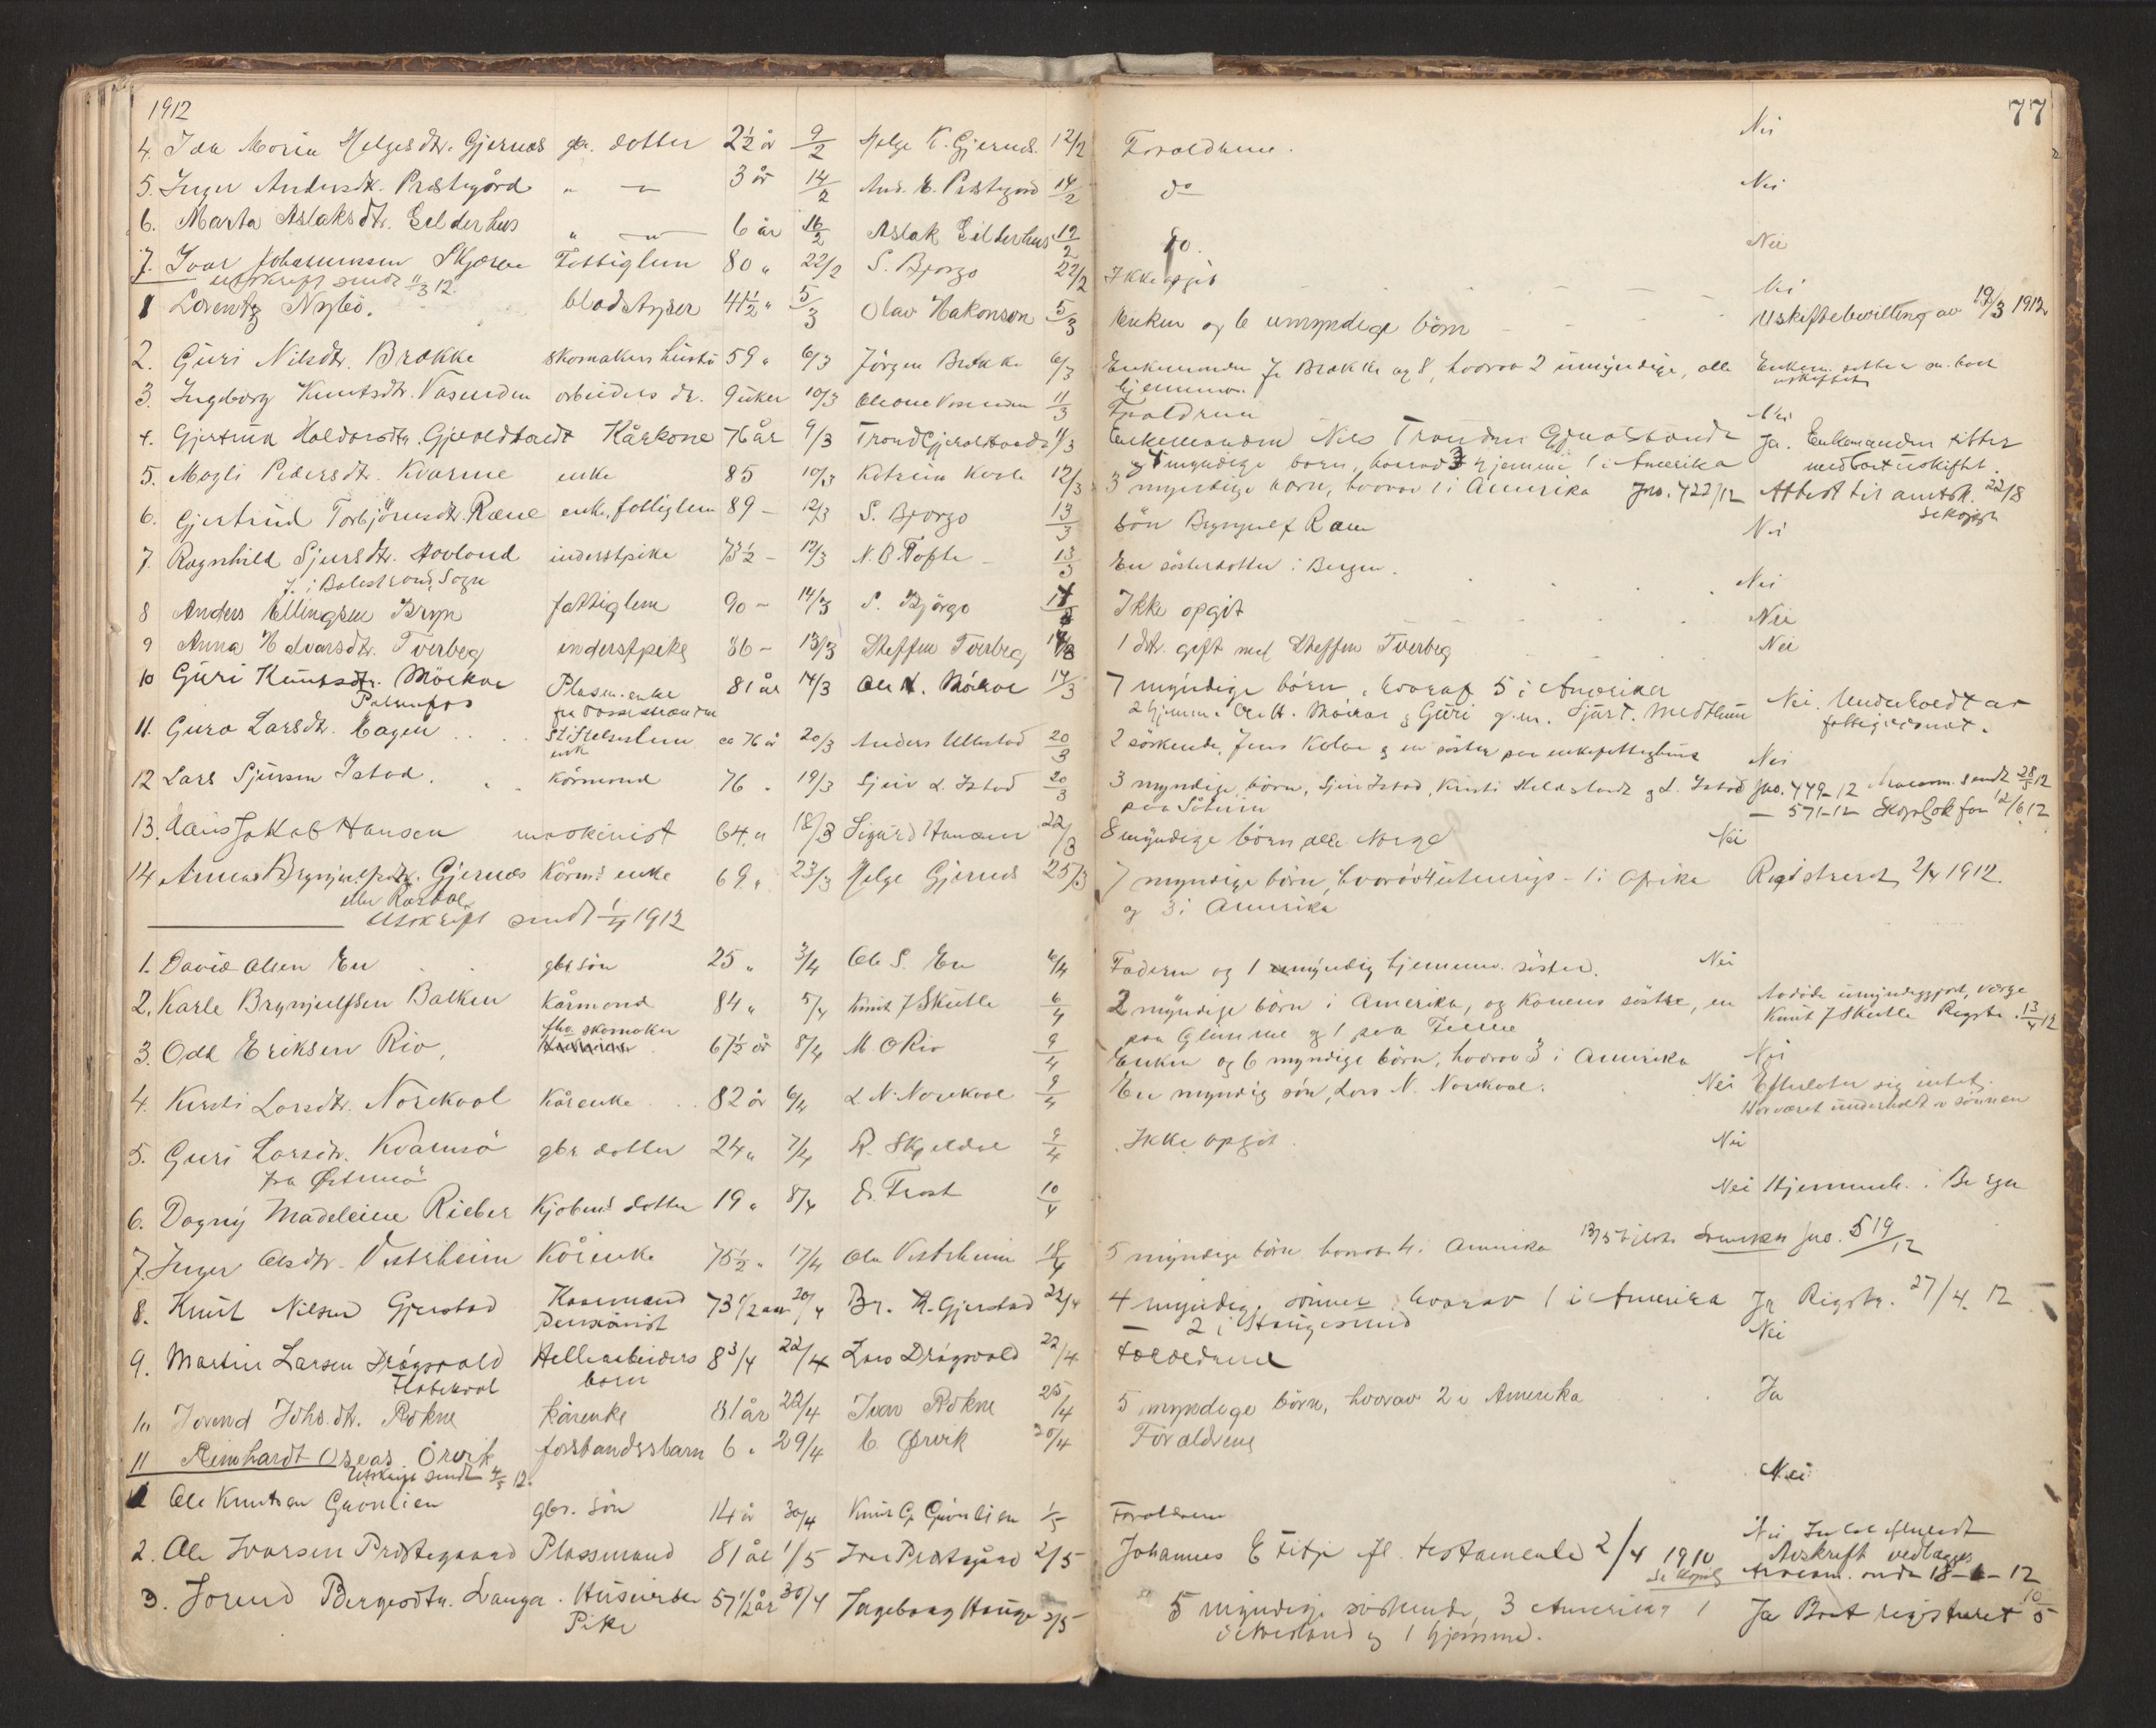 1912
77
4. Ida Maria Helgesdtr. Gjernes gbr. dotter 2½ år 9/2 Helge K. Gjernes 12/2 Forældrene. Nei
5. Inger Andersdtr. Prestegård " — 3 år 14/2 And. E. Prestegård 14/2 do Nei
6. Marta Aslaksdtr. Gilderhus " — 6 år 16/2 Aslak Gilderhus 19/2 do. Nei
7. Ivar Johannessen Skjerve Fattiglem 80 " 22/2 S. Bjørgo 22/2 Ikke opgit Nei
utskrift sendt 11/3 12.
1 Lorentz Nybø. bladstyrer 41½ " 5/3 Olav Hakonson 5/3 Enken og 6 umyndige børn Uskiftebevilling av 19/3 1912
2. Guri Nilsdtr. Brække skomakers hustru 59 " 6/3 Jörgen Brække 6/3 Enkemanden J. Brække og 8, hvorav 2 umyndige, alle Enkem. sitter m. boet
hjemme. uskiftet
3. Ingeborg Knutsdtr. Vasenden arbeiders dr. 9 uker 10/3 Vasenden 11/3 Forældrene Nei
4. Gjertrud Haldorsdtr. Gjeraldstveit Kårkone 76 år 9/3 Trond Gjeraldstveit 11/3 Enkemanden Nils Trondsen Gjeraldstveit Ja. Enkemanden sitter
4 myndige børn, hvorav 3 hjemme 1 i Amerika med boet uskiftet.
5. Magli Pedersdtr. Kvarme enke 85 10/3 Katrina 12/3 3 myndige børn, hvorav 1 i Amerika Jno. 422/12 Attest til amtsk. 22/8
se kopib.
6. Gjertrud Torbjörnsdtr. Ræne enke, fattiglem 89 – 12/3 S. Bjørgo 13/3 Sön Brynjulf Ræne Nei
7. Ragnhild Sjursdtr. Hovland inderstpike 73½ – 12/3 N. B. Tofte 13/3 En søsterdotter i Bergen. Nei
f. i Balestrand, Sogn
8 Anders Ellingsen Bryn fattiglem 90 – 14/3 S. Bjørgo 14/3 Ikke opgit Nei
9 Anna Halvarsdtr. Tverberg inderstpike 86 – 13/3 Steffen Tverberg 14/3 1 dtr. gift med Steffen Tverberg Nei
10 Guri Knutsdtr. Mörkve Plasm. enke 81 år 14/3 Ole H. Mörkve 14/3 7 myndige børn, hvoraf 5 i Amerika Nei. Underholdt av
Palmafos fra Vossestranden 2 hjemme Ole H. Mörkve & Guri g.m. Sjurt. Medthun fattigvesenet.
11. Guro Larsdtr. Hagen Stiftelseslem ca 76 år 20/3 Anders Ullestad 20/3 2 söskende, Jens og en søster paa enkefattighus Nei
enke
12 Lars Sjursen Istad. Kårmand 76 " 19/3 Sjur L. Istad 20/3 3 myndige børn, Sjur Istad, Kristi Heldstveit og L. Istad Jno. 449-12 sendt 28/5 12
paa — 571-12 12/6 12
13. Hans Jakob Hansen maskinist 64 " 18/3 Sigurd Hansen 22/3 8 myndige børn alle Norge Nei
14 Anna Brynjulfsdtr. Gjernes Kårm's enke 69 " 23/3 Helge Gjernes 25/3 7 myndige børn, hvorav 4 utenrigs – 1 i Afrika Registreret 2/4 1912.
eller Rastad og 3 i Amerika
Utskrift sendt 1/4 1912
1. David Olsen En gbr. sön 25 " 3/4 Ole S. En 6/4 Faderen og 1 umyndig hjemmev. søster. Nei
2. Karle Brynjulfsen Balken Kårmand 84 " 5/4 Knut J Skutle 6/4 2 myndige børn i Amerika, og konens søstre, en Avdøde umyndiggjort, værge
paa Glimme og 1 paa Finne Knut J Skutle Registr. 13/4 12
3. Odd Eriksen Rio, fhv. skomaker 67½ år 8/4 M O Rio 9/4 Enken og 6 myndige børn, hvorav 3 i Amerika Nei
4. Kirsti Larsdtr. Nörekvol Kårenke 82 år 6/4 L. N. Nörekvol 9/4 En myndig sön, Lars N. Nörekvol. Nei Efterlater sig intet.
Har været underholdt av sönnen
5. Guri Larsdtr. Kvamsö gbr. dotter 24 " 7/4 R. Skjeldal 9/4 Ikke opgit. Nei
fra
6. Dagny Madeleine Rieber Kjøbm's dotter 19 " 8/4 Frost 10/4 Nei Hjemmeh. i Bergen
7. Inger Olsdtr. Vestrheim Kårenke 75½ " 17/4 Ola Vestrheim 18/4 5 myndige børn hvorav 4 i Amerika 13/5 Jno. 519/12
8. Knut Nilsen Gjerstad Kaarmand 73½ aar 20/4 Br. K. Gjerstad 22/4 4 myndige sönner hvorav 1 i Amerika Ja Registr. 27/4. 12
Pensionist — 2 i Haugesund Nei
9. Martin Larsen Drögsvold Hellearbeiders 8 3/4 22/4 Lars Drögsvold 22/4 Forældrene
Flatekval barn
10 Jorend Johs.dtr. Rökne Kårenke 81 år 22/4 Ivar Rökne 25/4 5 myndige børn, hvorav 2 i Amerika Ja
11 Reinhardt Oseas Örvik forstandersbarn 6 " 29/4 Ørvik 30/4 Forældrene
Utskrift sendt 4/5 12. Nei
1 Ole Knutsen Grönlien gbr. sön 14 år 30/4 Knut G Grönlien 1/5 Forældrene
2. Ole Ivarsen Prestegaard Plassmand 81 år 1/5 Iver Prestegård 2/5 Johannes E fitje fl. testamente 2/4 1910 Nei
Avskrift vedlægges
se kopib 18-6-12
3. Jorend Bergesdtr. Lauga. Husvirker 57½ år 30/4 Ingeborg Hauge 2/5 5 myndige söskende, 3 Amerika, 1 Ja Boet registreret 10/5
Pike og 1 hjemme.